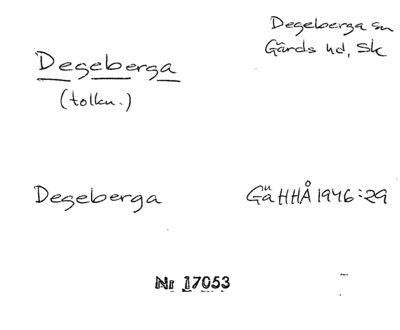 Degeberga sn
Gärds hd, Sk
Degeberga
(tolkn.)
Degeberga GäHHÅ 1946:29
Nr 17053